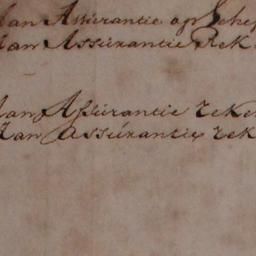 Aan Assurantie op Schep
Aan Assurantie Rek
Aan Assurantie reken
Aan Assurantie rek